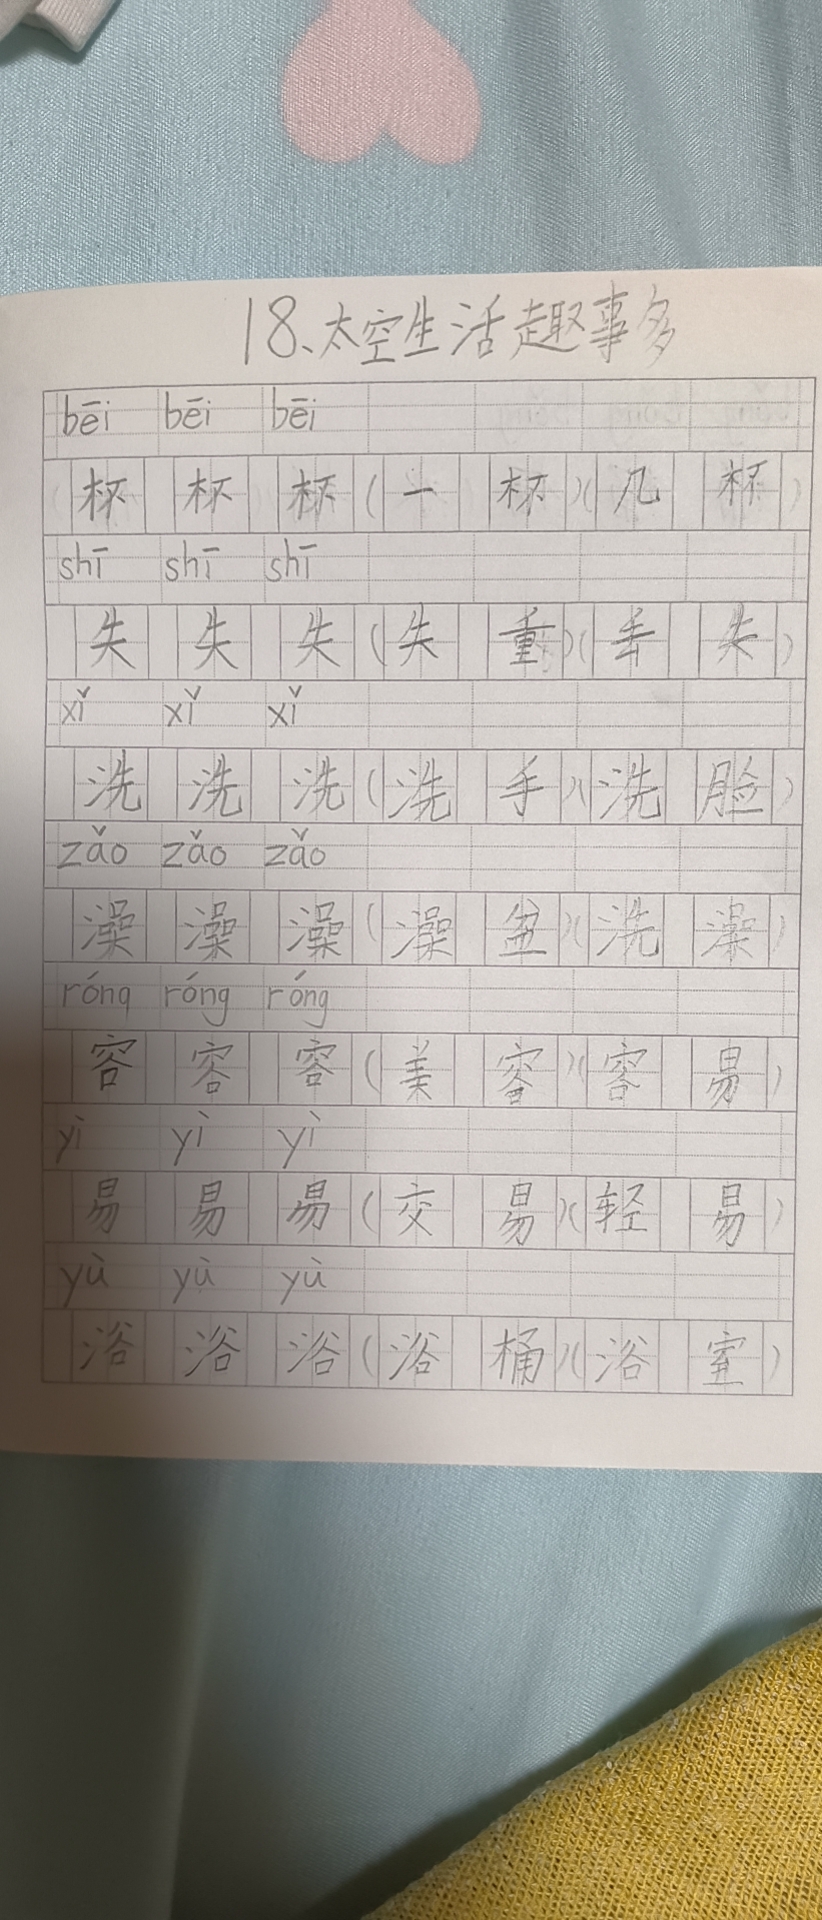 18、太空生活趣事多
bēi bēi bēi
杯 杯 杯 (一 杯)(几 杯)
shī shī shī
失 失 失 (失 重)(丢 失)
xǐ xǐ xǐ
洗 洗 洗 (洗 手)(洗 脸)
zǎo zǎo zǎo
澡 澡 澡 (澡 盆)(洗 澡)
róng róng róng
容 容 容 (美 容)(容 易)
yì yì yì
易 易 易 (交 易)(轻 易)
yù yù yù
浴 浴 浴 (浴 桶)(浴 室)